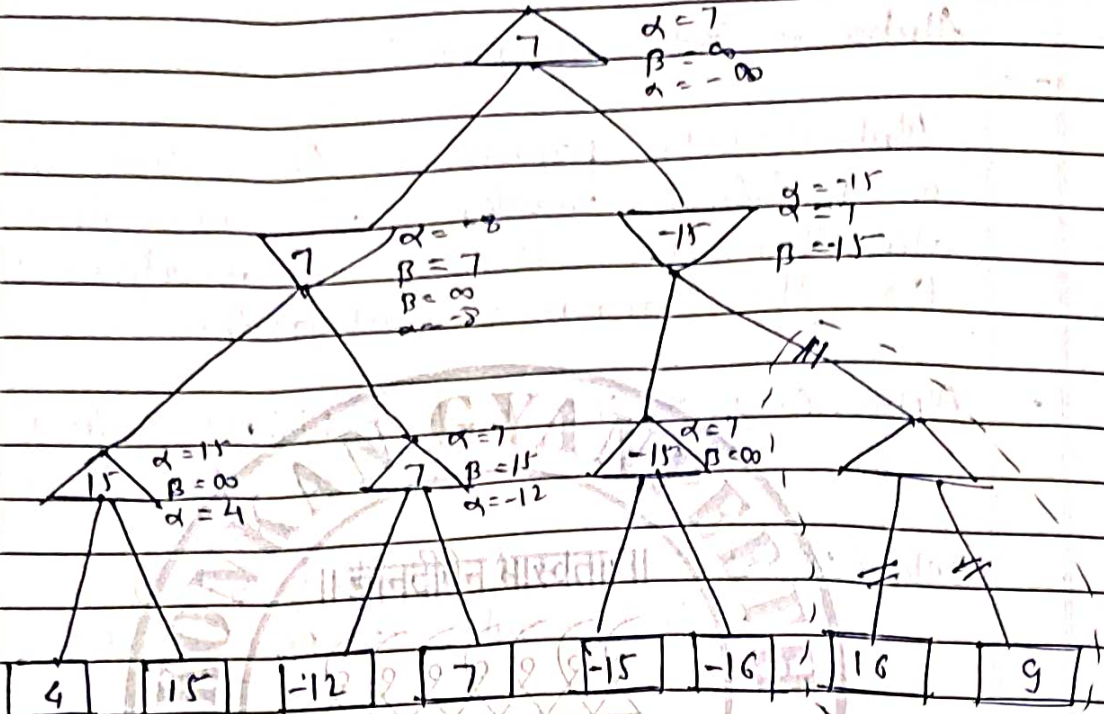 α = 7
7
β = ∞
α = - ∞
α = -15
-15
β = -15
7
β = 7
β = ∞
15
α = 15
β = ∞
α = 4
7
α = 7
β = 15
α = -12
-15
α = 7
β = ∞
4 15 -12 7 -15 -16 16 9